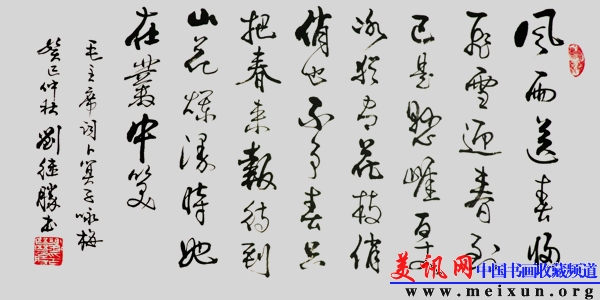 风雨送春归
飛雪迎春到
已是懸崖百丈
冰猶有花枝俏
俏也不争春只
把春来報待到
山花爛漫時她
在叢中笑
毛主席词卜算子咏梅
癸巳仲秋劉德勝书
美讯网中国书画收藏频道
www.meixun.org